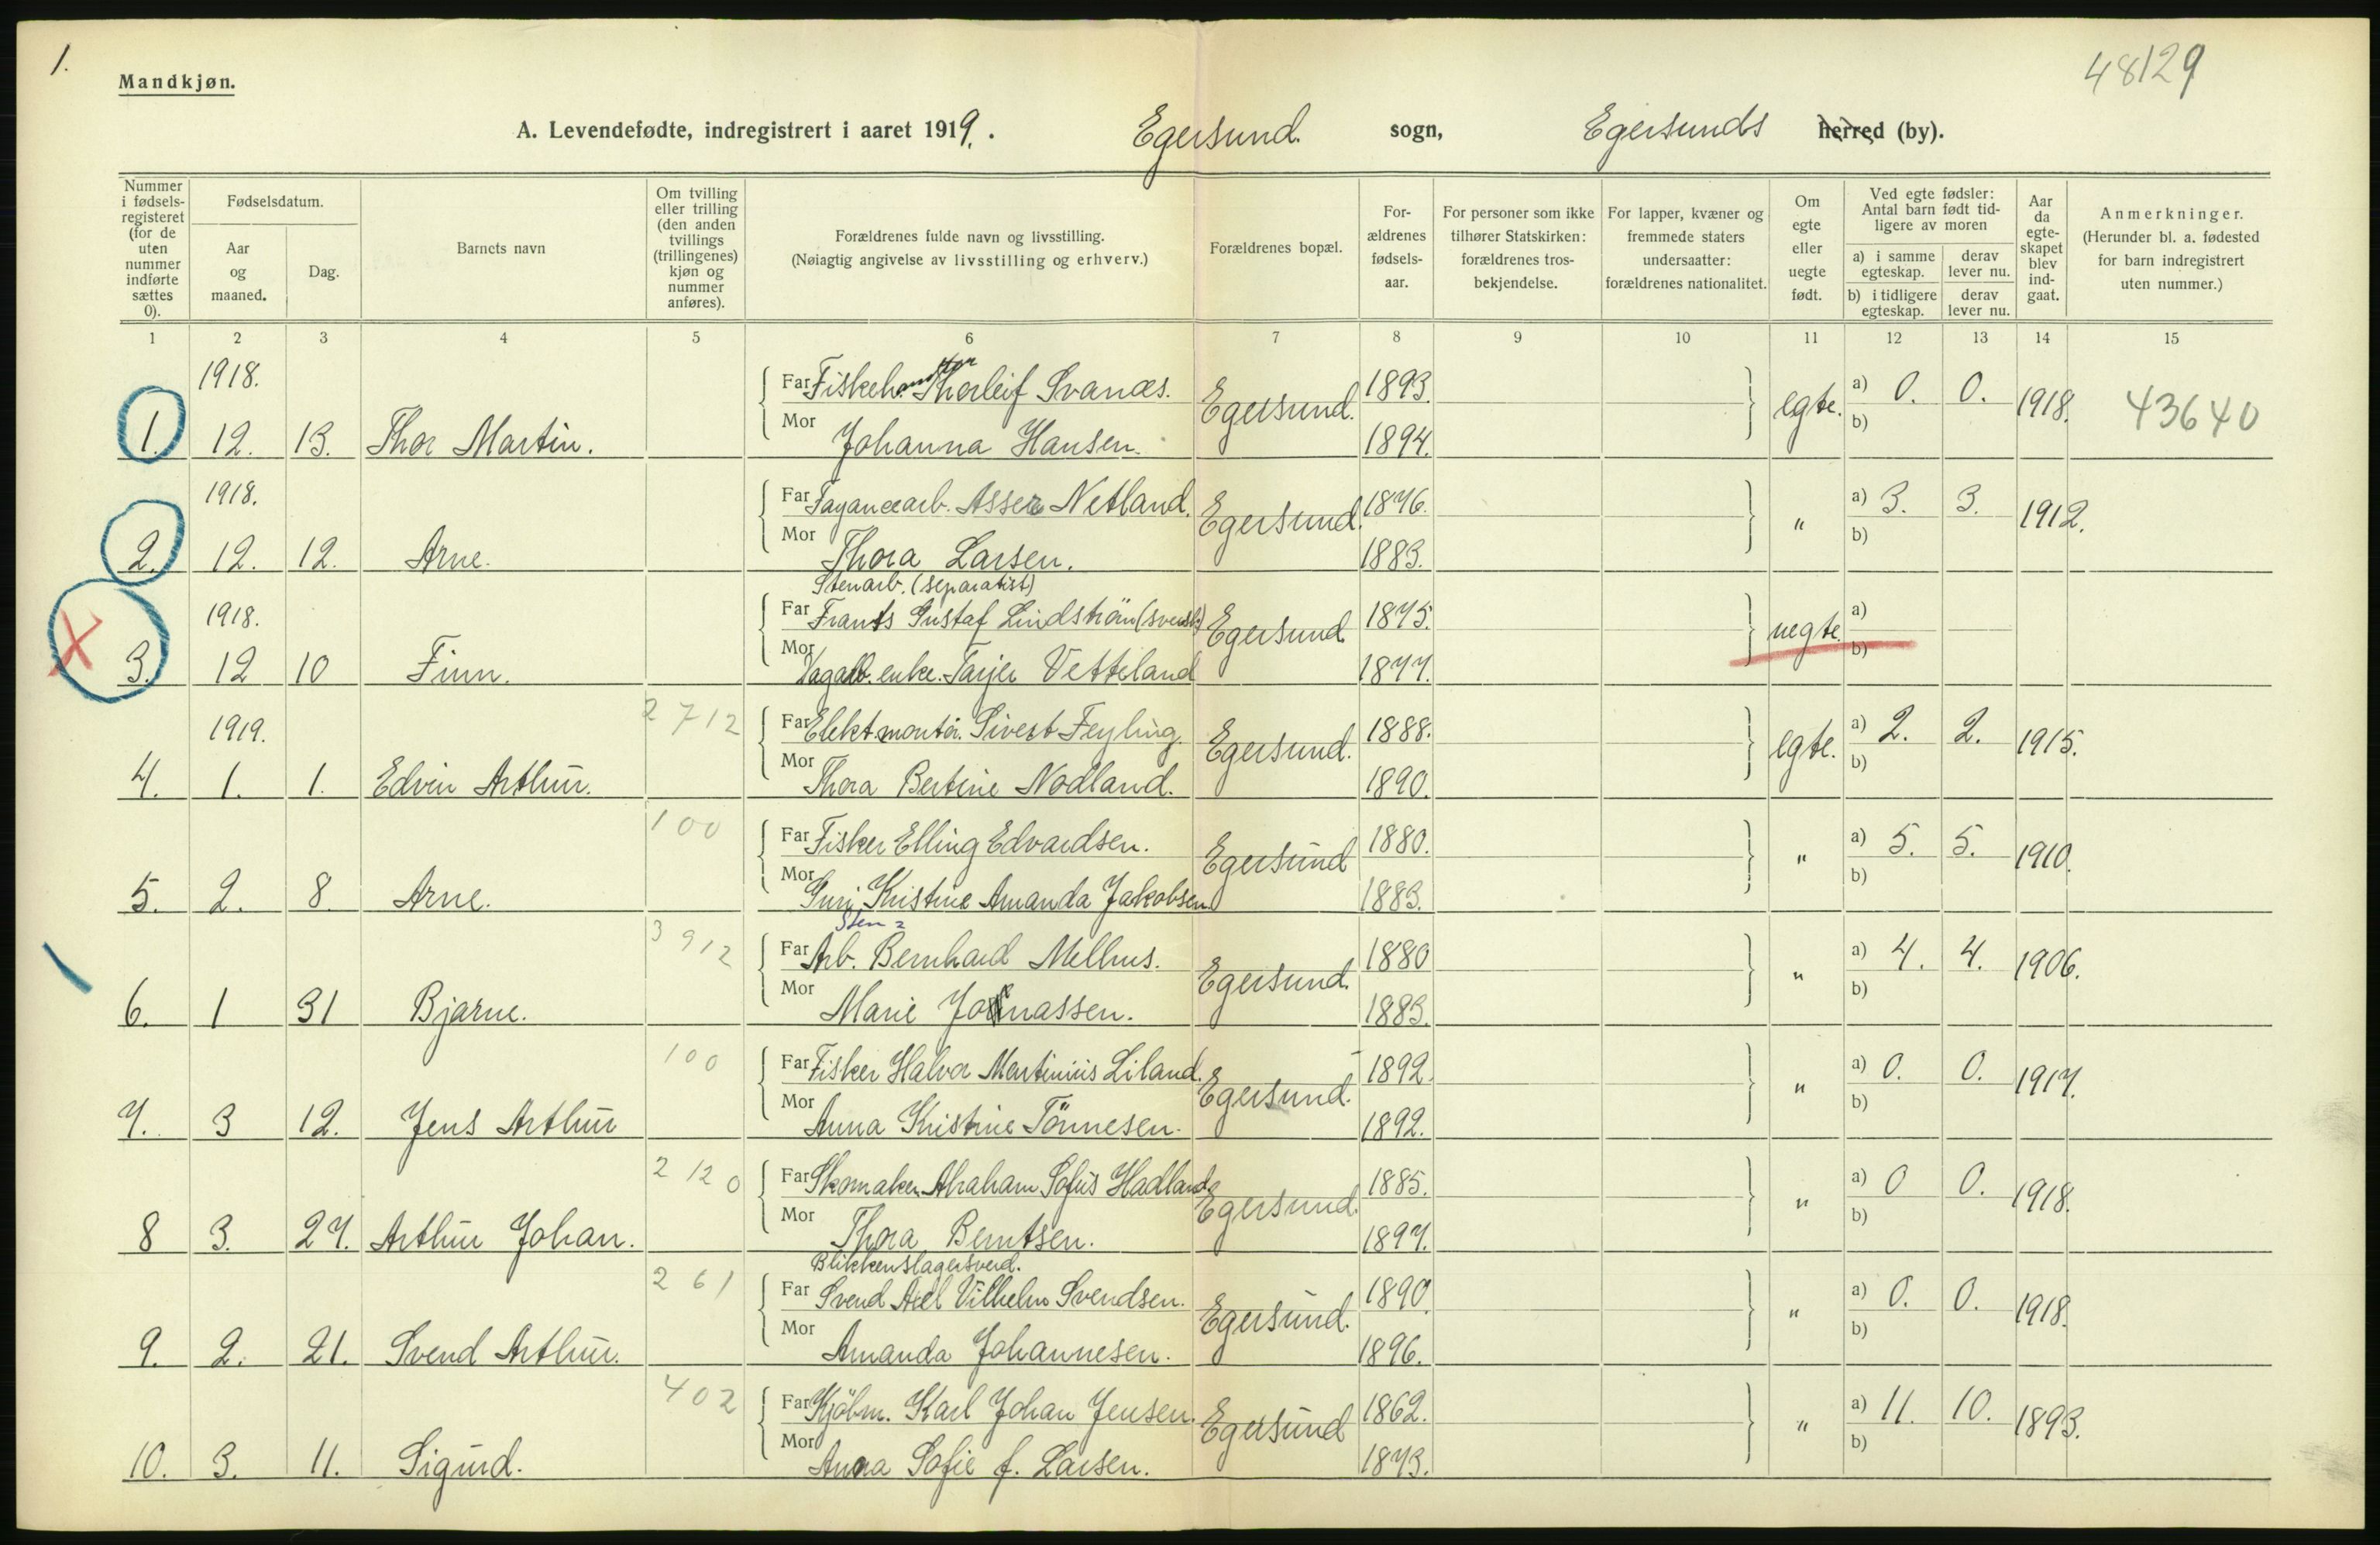 1.
48129
Mandkjøn.
A. Levendefødte, indregistrert i aaret 1919. Egersund. sogn, Egersunds herred (by).
Nummer i fødsels-registeret (for de uten nummer indførte sættes 0).
Fødselsdatum.
Aar og maaned.
Dag.
Barnets navn
Om tvilling eller trilling (den anden tvillings (trillingenes) kjøn og nummer anføres).
Forældrenes fulde navn og livsstilling.
(Nøiagtig angivelse av livsstilling og erhverv.)
Forældrenes bopæl.
For-ældrenes fødsels-aar.
For personer som ikke tilhører Statskirken: forældrenes tros-bekjendelse.
For lapper, kvæner og fremmede staters undersaatter: forældrenes nationalitet.
Om egte eller uegte født.
Ved egte fødsler: Antal barn født tid-ligere av moren
a) i samme egteskap.
derav lever nu.
b) i tidligere egteskap.
derav lever nu.
Aar da egte-skapet blev ind-gaat.
Anmerkninger.
(Herunder bl. a. fødested for barn indregistrert uten nummer.)
1 2 3 4 5 6 7 8 9 10 11 12 13 14 15
1918. Far Fiskehandler Thorleif Svanæs. Egersund. 1893. egte. a) 0. 0. 1918. 43640
1. 12. 13. Thor Martin. Mor Johanna Hansen. 1894. b)
1918. Far Fayancearb. Asser Netland. Egersund. 1876. " a) 3. 3. 1912.
2. 12. 12. Arne. Mor Thora Larsen. 1883. b)
Stenarb. (separatist)
1918. Far Frants Gustaf Lindström (svensk) Egersund 1875. uegte. a)
X 3. 12 10 Finn. Mor Dagarb. enke. Tarjer Vetteland 1877. b)
1919. 2 712 Far Elekt.montör. Sivert Feyling. Egersund. 1888. egte. a) 2. 2. 1915.
4. 1. 1. Edvin Arthur. Mor Thora Bertine Nodland. 1890. b)
100 Far Fisker Elling Edvardsen. Egersund 1880. " a) 5. 5. 1910.
5. 2. 8. Arne. Mor Guri Kristine Amanda Jakobsen 1883. b)
Sten=
3 912 Far Arb. Bernhard Mellhus. Egersund. 1880 " a) 4. 4. 1906.
6. 1 31 Bjarne. Mor Marie Jonassen. 1883. b)
100 Far Fisker Halvor Martinius Liland. Egersund. 1892. " a) 0. 0. 1917.
7. 3 12. Jens Arthur Mor Anna Kristine Tönnesen. 1892. b)
2 120 Far Skomaker Abraham Sofus Hadland Egersund. 1885. " a) 0 0. 1918.
8 3. 27. Arthur Johan. Mor Thora Berntsen. 1897. b)
Blikkenslagersvend.
2 61 Far Svend Axel Vilhelm Svendsen. Egersund. 1890. " a) 0. 0. 1918.
9. 2. 21. Svend Arthur. Mor Amanda Johannesen. 1896. b)
402 Far Kjöbm. Karl Johan Jensen. Egersund 1862. " a) 11. 10. 1893.
10. 3. 11. Sigurd. Mor Anna Sofie f. Larsen. 1873. b)